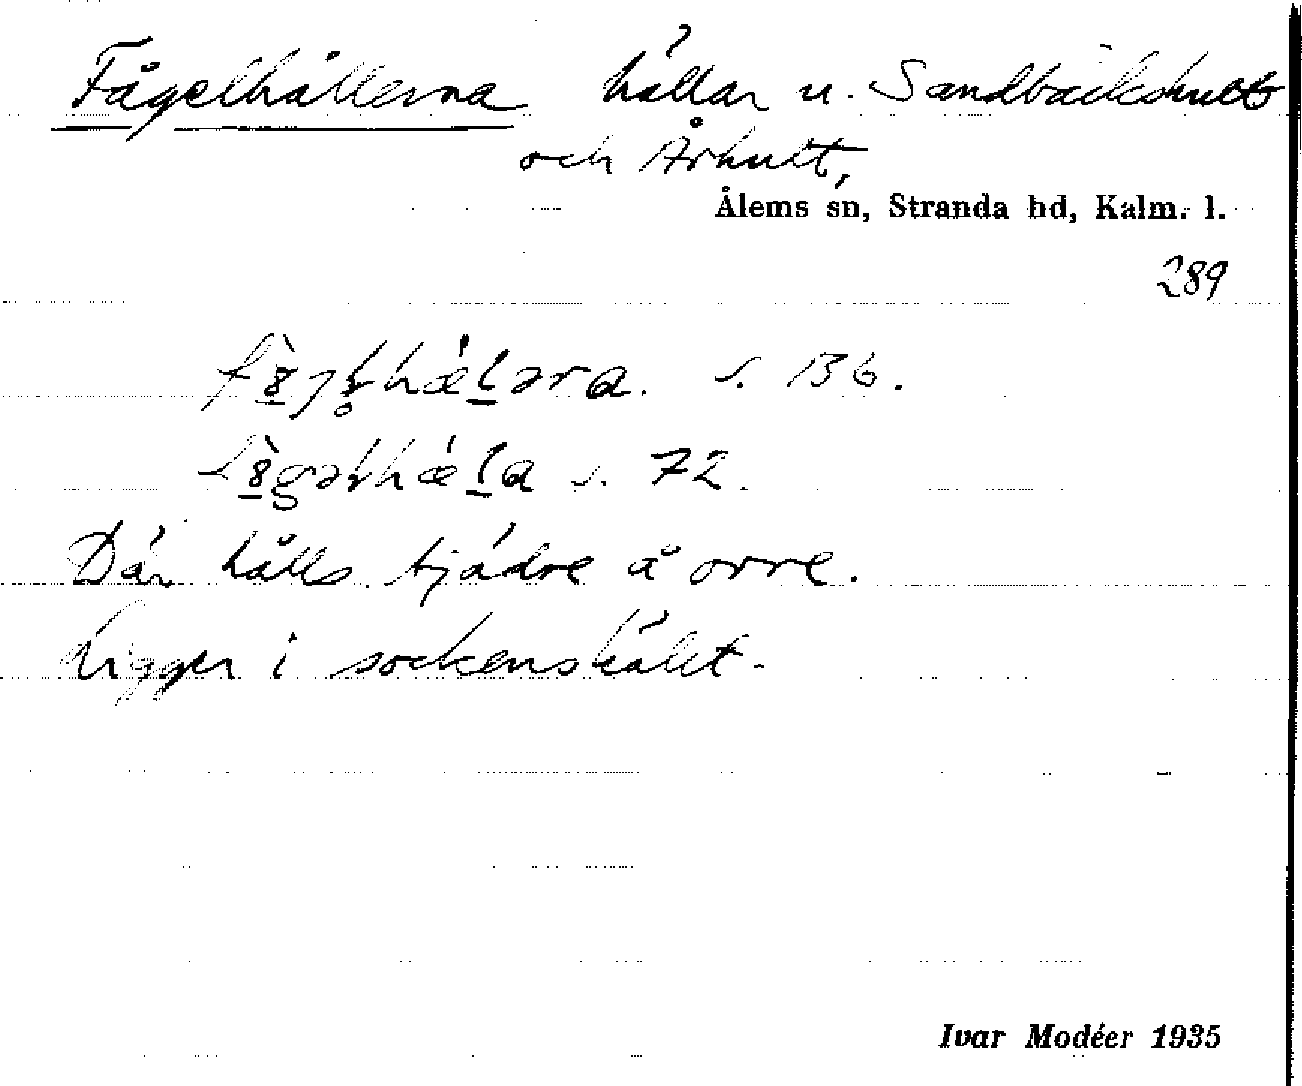 Fågelhällerna hällar u. Sandbäckshult
och Århult,
Ålems sn, Stranda hd, Kalm. l.
289
s. 136.
s. 72.
Där hålls tjädre å orre.
Ligger i sockenskälet.
Ivar Modéer 1935